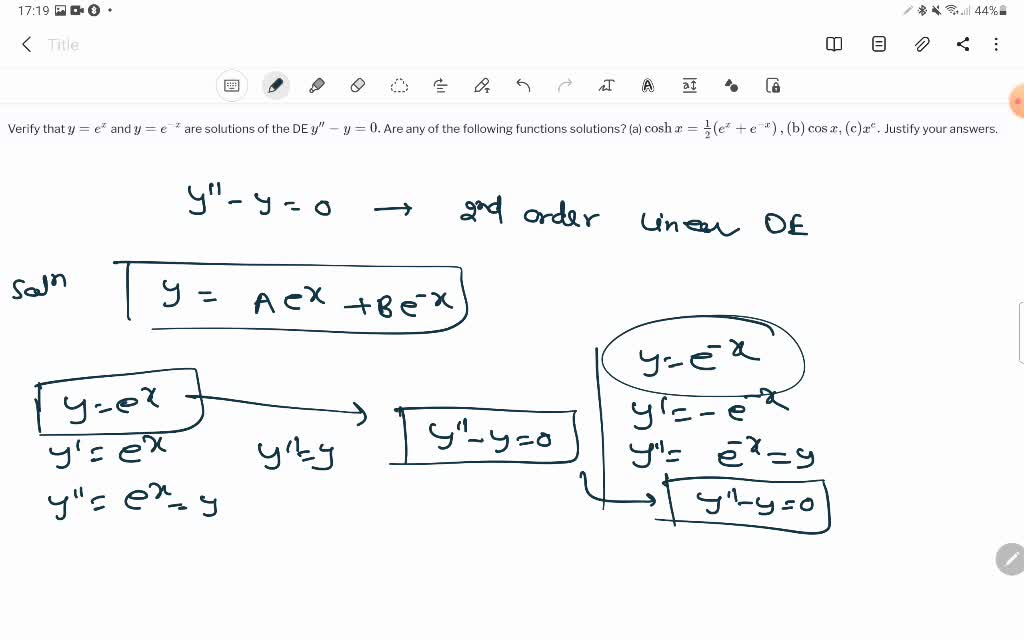 17:19 44%
Title
Verify that y = e^x and y = e^{-x} are solutions of the DE y'' − y = 0. Are any of the following functions solutions? (a) cosh x = 1/2 (e^x + e^{-x}), (b) cos x, (c) x^e. Justify your answers.
y'' - y = 0 → 2nd order Linear DE
Soln y = Ae^x + Be^{-x}
y = e^x
y' = e^x
y'' = e^x = y
y'' = y
y'' - y = 0
y = e^{-x}
y' = -e^{-x}
y'' = e^{-x} = y
y'' - y = 0